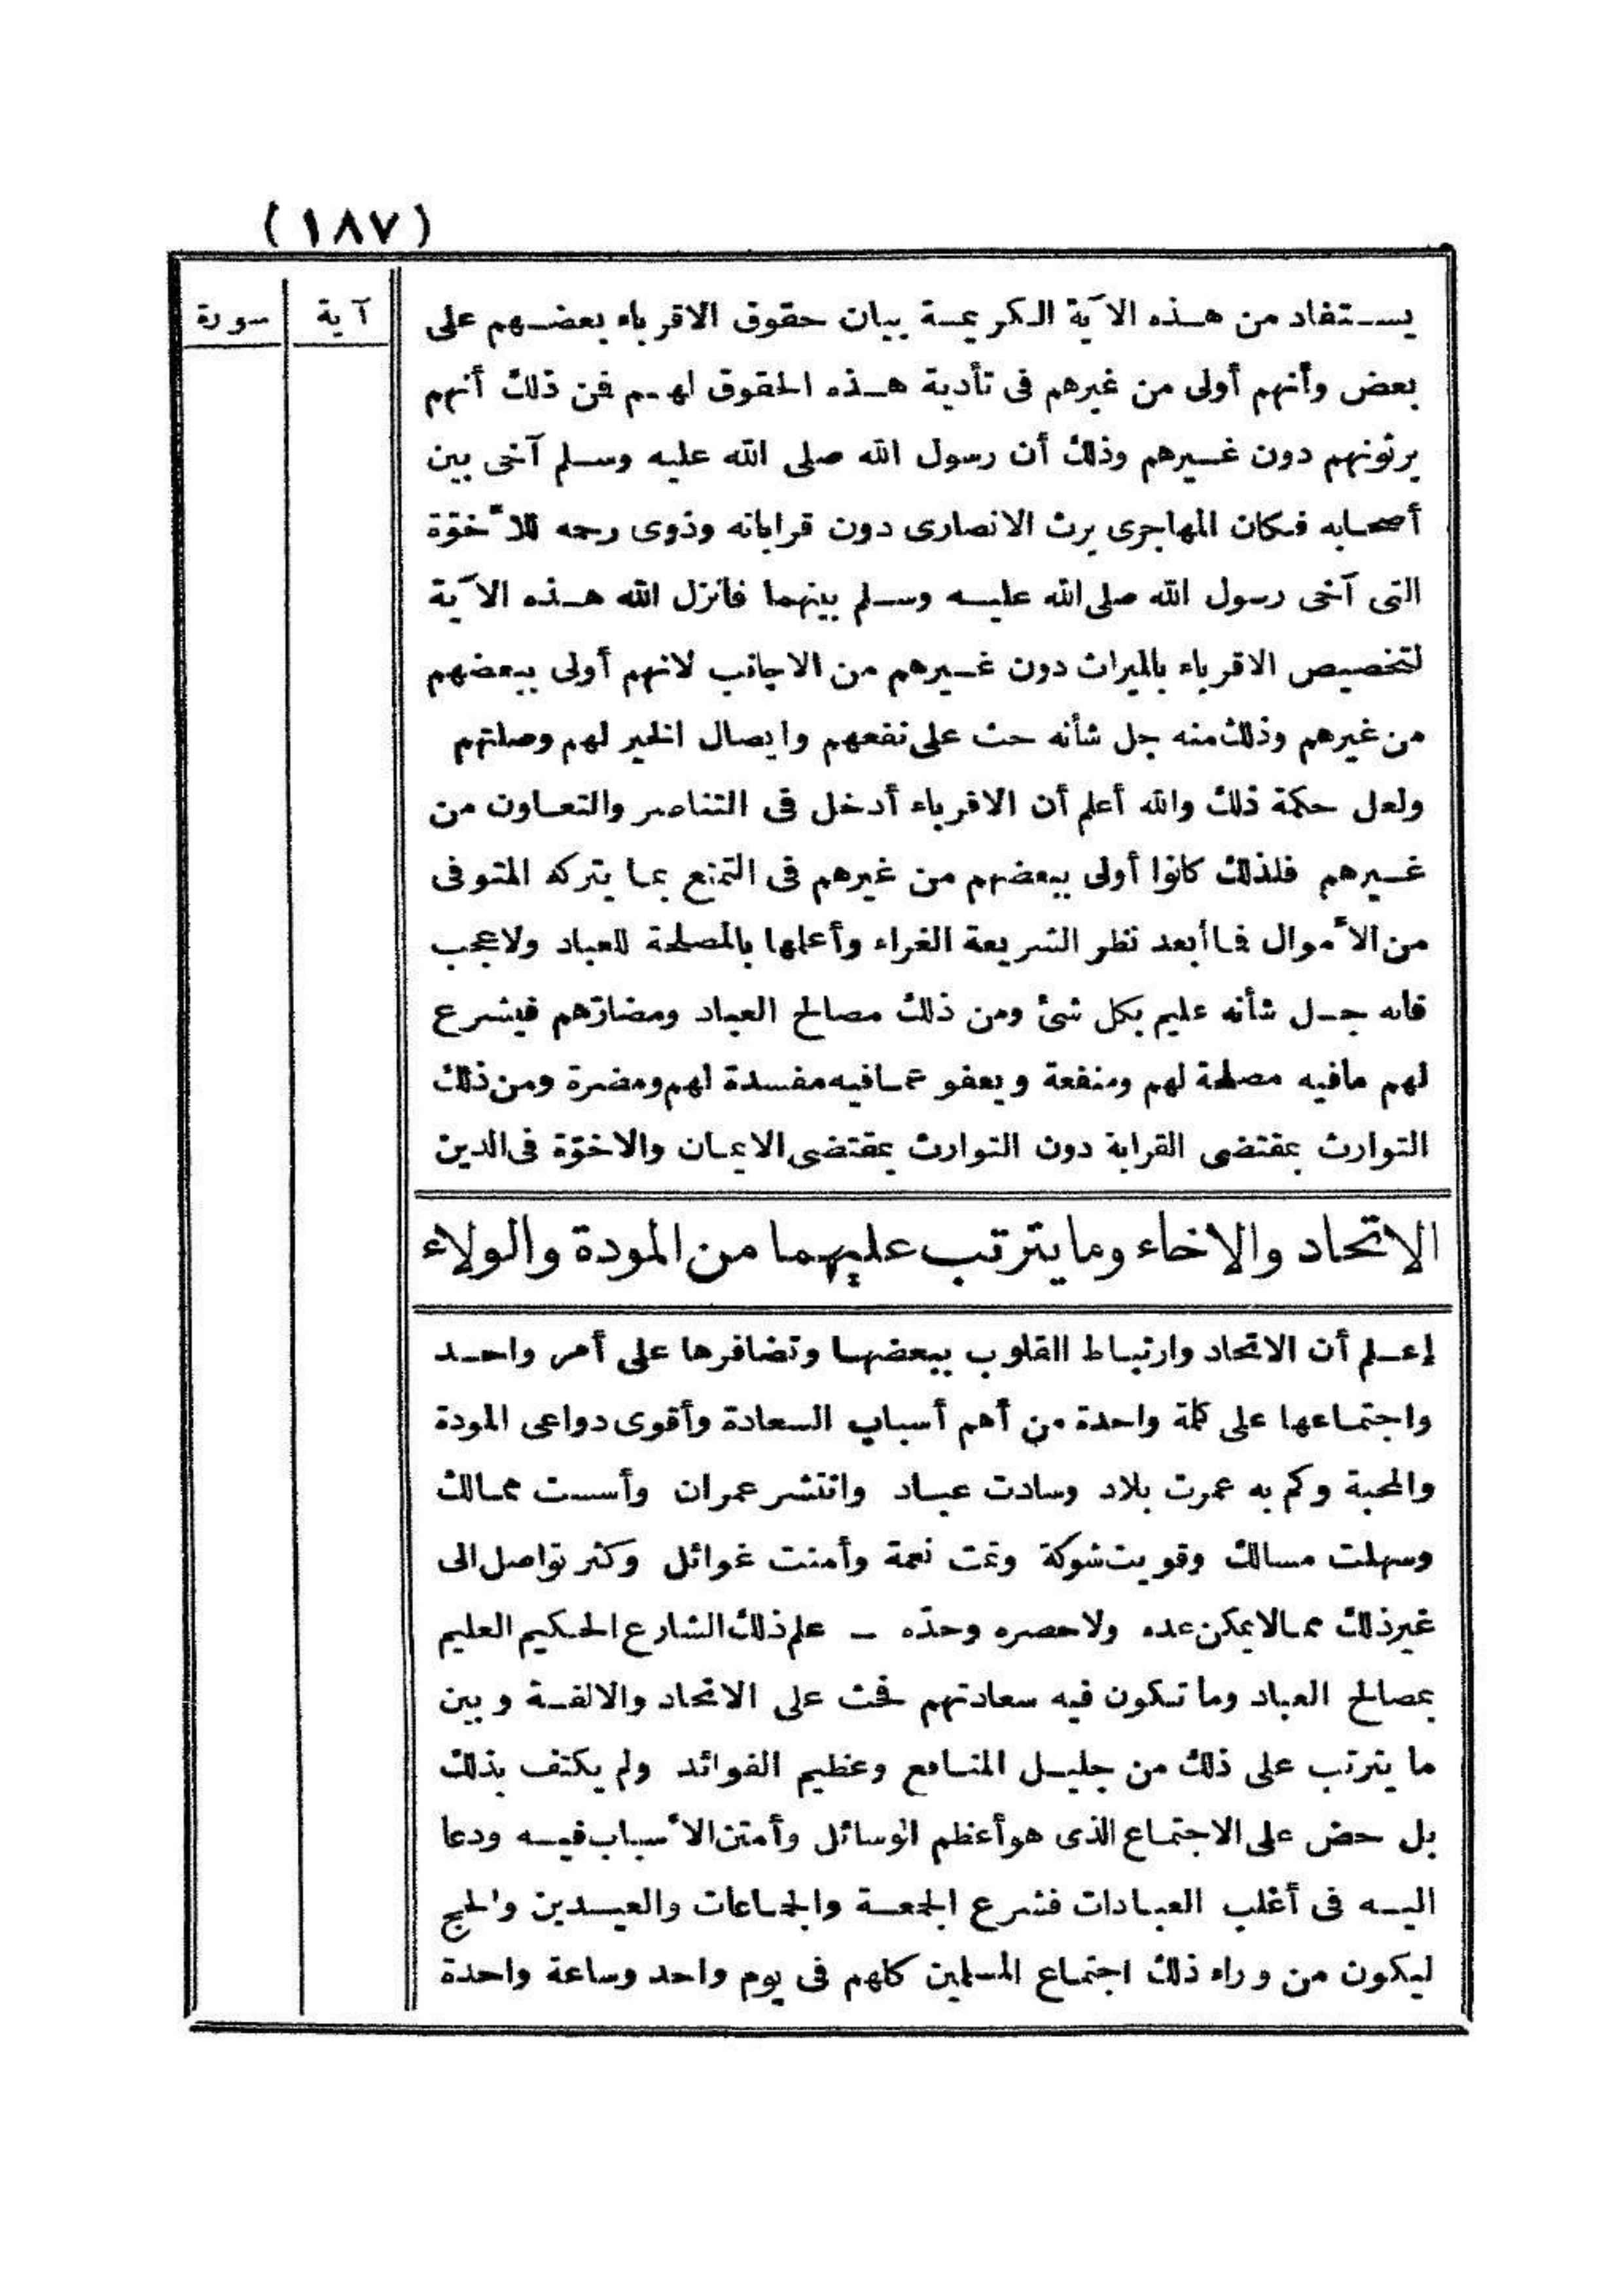 (١٨٧)
آية
سورة
يستفاد من هذه الآية الكريمة بيان حقوق الاقرباء بعضهم على
بعض وأنهم أولى من غيرهم فى تأدية هذه الحقوق لهم فمن ذلك أنهم
يرثونهم دون غيرهم وذلك أن رسول الله صلى الله عليه وسلم آخى بين
أصحابه فكان المهاجرى يرث الانصارى دون قراباته وذوى رحمه للأخوّة
التى آخى رسول الله صلى الله عليه وسلم بينهما فأنزل الله هذه الآية
لتخصيص الاقرباء بالميراث دون غيرهم من الاجانب لانهم أولى ببعضهم
من غيرهم وذلك منه جل شأنه حث على نفعهم وايصال الخير لهم وصلتهم
ولعل حكمة ذلك والله أعلم أن الاقرباء أدخل فى التناصر والتعاون من
غيرهم فلذلك كانوا أولى ببعضهم من غيرهم فى التمتع بما يتركه المتوفى
من الأموال فما أبعد نظر الشريعة الغراء وأعلمها بالمصلحة للعباد ولا عجب
فانه جل شأنه عليم بكل شئ ومن ذلك مصالح العباد ومضارّهم فيشرع
لهم ما فيه مصلحة لهم ومنفعة ويعفو عما فيه مفسدة لهم ومضرة ومن ذلك
التوارث بمقتضى القرابة دون التوارث بمقتضى الايمان والاخوّة فى الدين
الاتحاد والاخاء وما يترتب عليهما من المودة والولاء
إعلم أن الاتحاد وارتباط القلوب ببعضها وتضافرها على أمر واحد
واجتماعها على كلمة واحدة من أهم أسباب السعادة وأقوى دواعى المودة
والمحبة وكم به عمرت بلاد وسادت عباد وانتشر عمران وأسست ممالك
وسهلت مسالك وقويت شوكة وتمت نعمة وأمنت غوائل وكثر تواصل الى
غير ذلك مما لا يمكن عده ولا حصره وحدّه – علم ذلك الشارع الحكيم العليم
بمصالح العباد وما تكون فيه سعادتهم فحث على الاتحاد والالفة وبين
ما يترتب على ذلك من جليل المنافع وعظيم الفوائد ولم يكتف بذلك
بل حض على الاجتماع الذى هو أعظم الوسائل وأمتن الأسباب فيه ودعا
اليه فى أغلب العبادات فشرع الجمعة والجماعات والعيدين والحج
ليكون من وراء ذلك اجتماع المسلمين كلهم فى يوم واحد وساعة واحدة